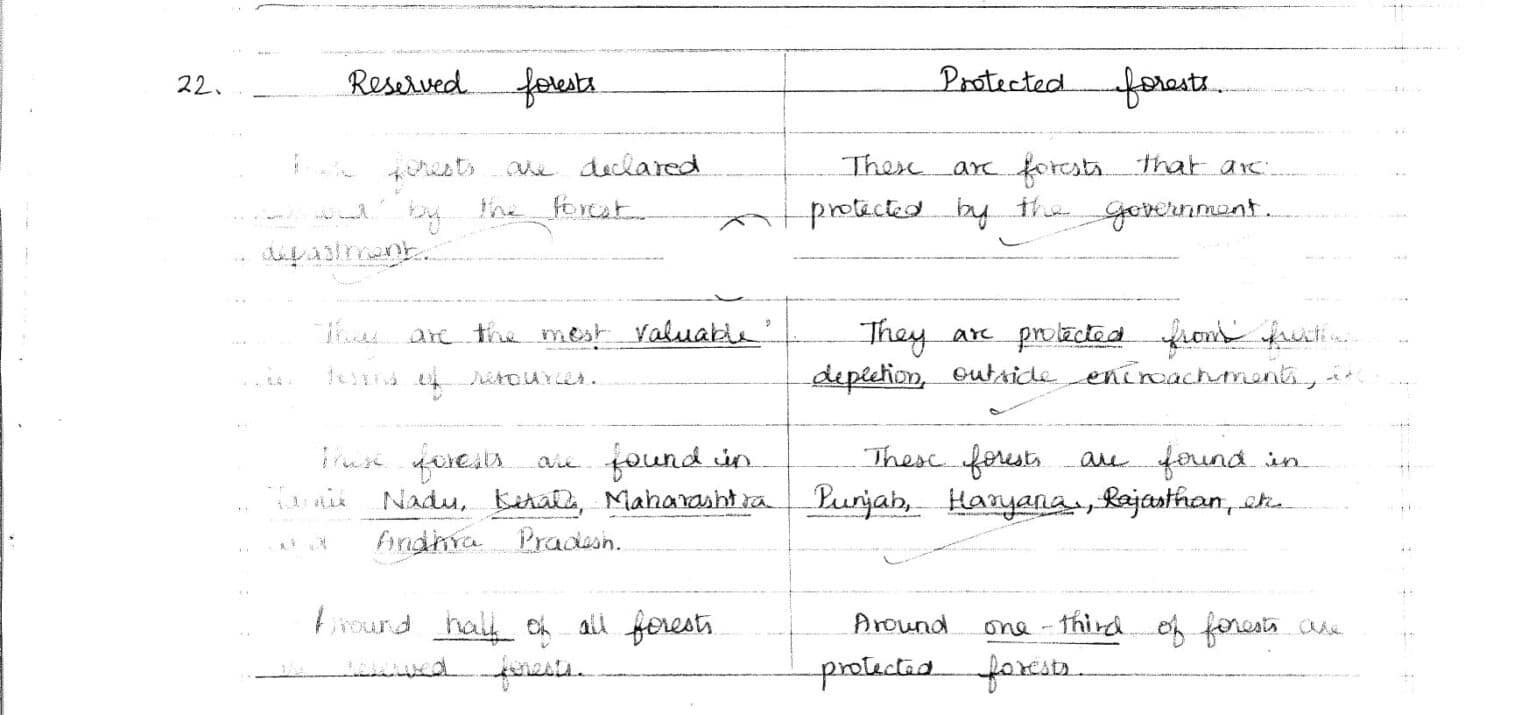 22. Reserved forests Protected forests.
forests are declared These are forests that are
by the forest protected by the government.
department.
They are the most valuable They are protected from
in terms of resources. depletion, outside encroachments,
These forests are found in These forests are found in
Tamil Nadu, Kerala, Maharashtra Punjab, Haryana, Rajasthan, etc.
Andhra Pradesh.
Around half of all forests Around one-third of forests are
reserved forests. protected forests.